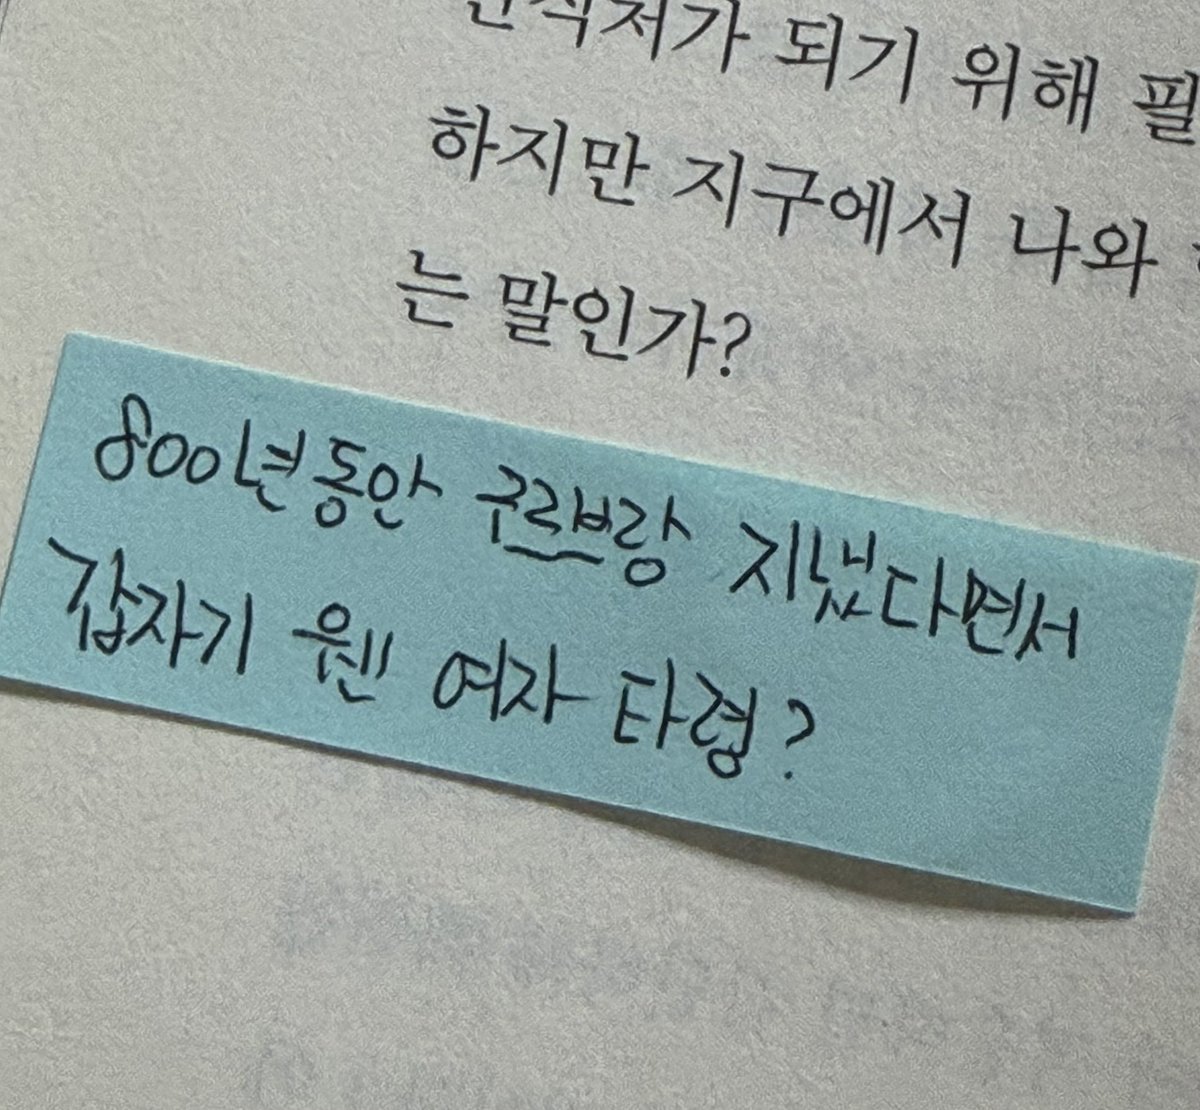 되기 위해 필
하지만 지구에서 나와
는 말인가?
800년동안 구르브랑 지냈다면서
갑자기 웬 여자 타령?